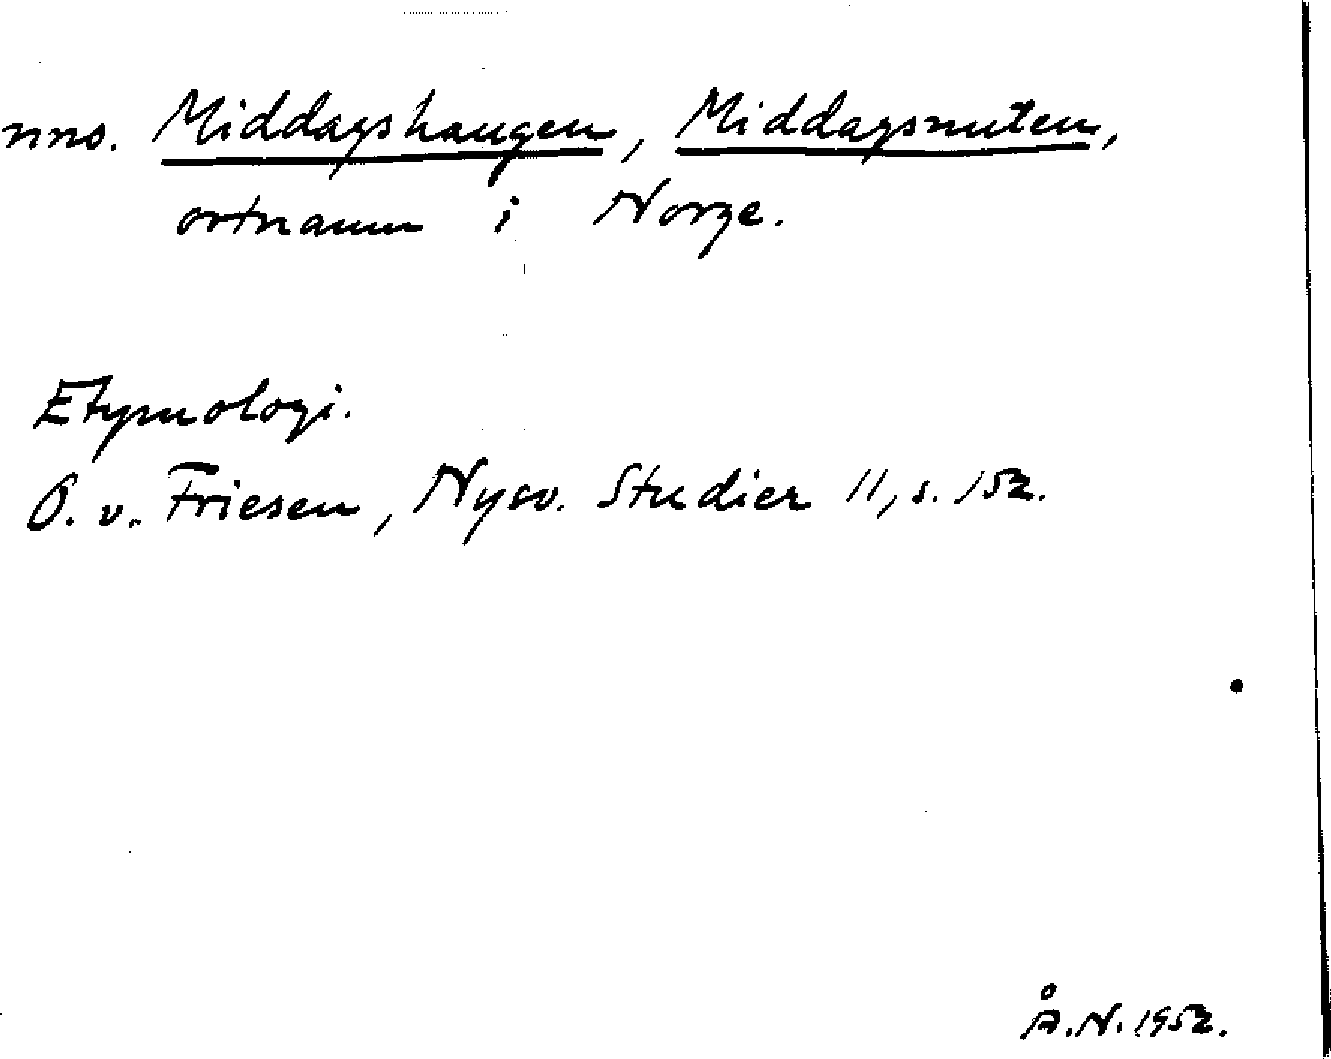 nno. Middagshaugen, Middagsnuten,
ortnamn i Norge.
Etymologi.
O. v. Friesen, Nysv. Studier 11, s. 152.
Å.N. 1952.